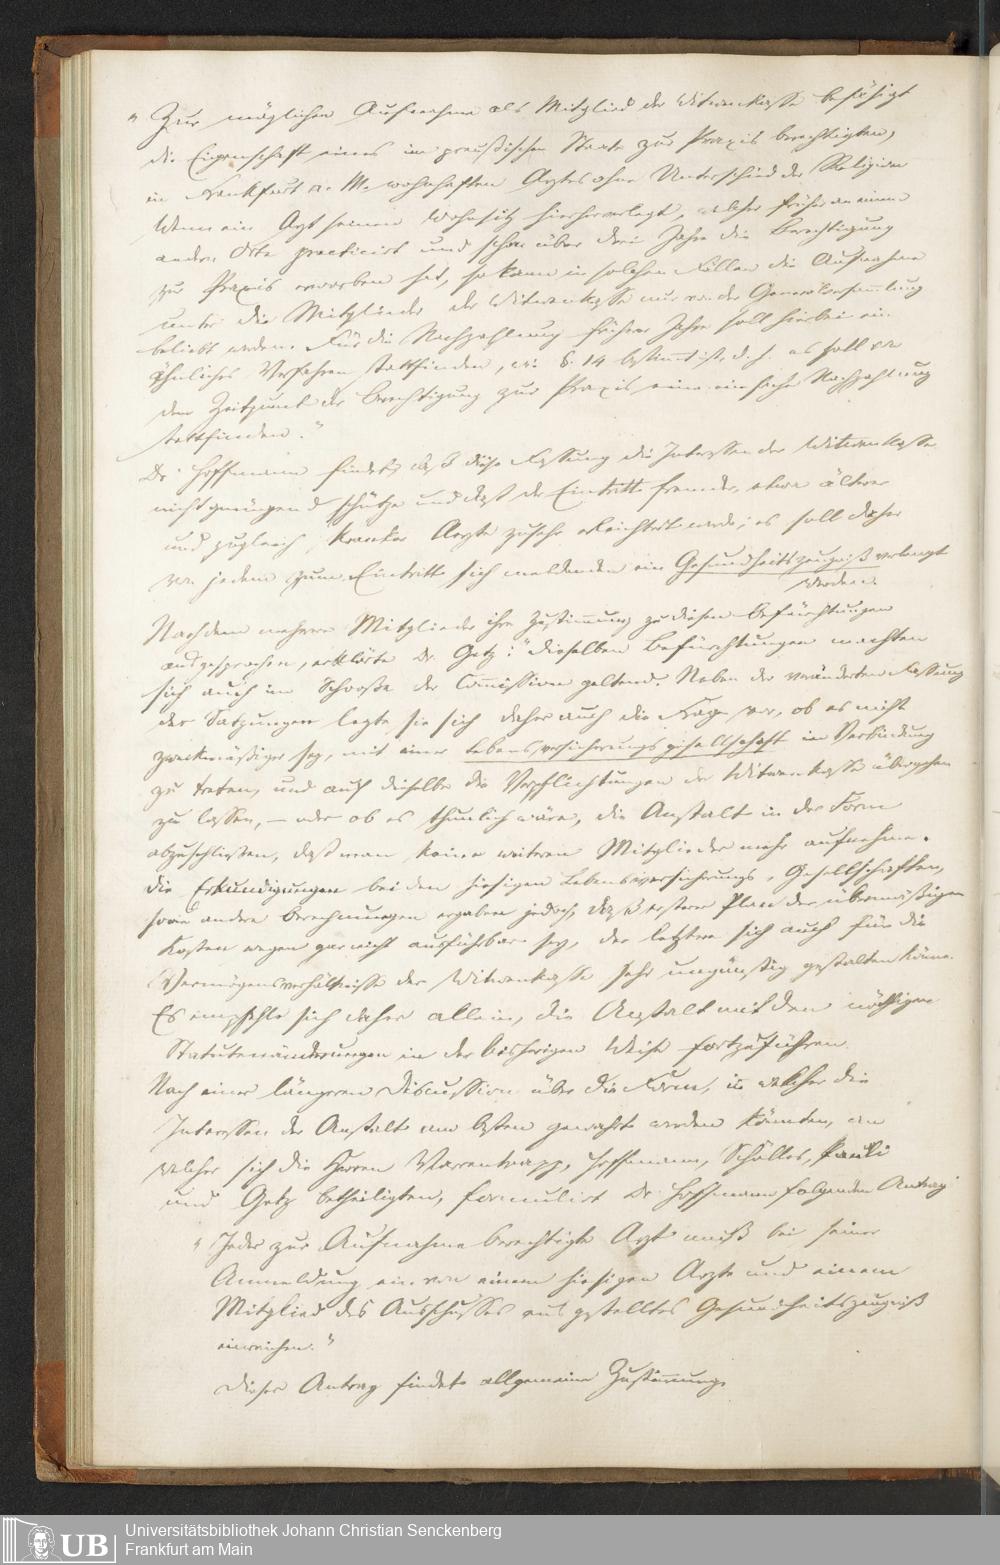 „Zur möglichen Aufnahme als Mitglied der Witwenkasse befähigt
die Eigenschaft eines im preußischen Staate zur Praxis berechtigten,
in Frankfurt a. M. wohnhaften Arztes ohne Unterschied der Religion
Wenn ein Arzt seinen Wohnsitz hierherverlegt, welcher früher an einem
andern Orte practicirt und schon über drei Jahre die Berechtigung
zur Praxis erworben hat, so kann in solchen Fällen die Aufnahme
unter die Mitglieder der Witwenkasse nur von der Generalversammlung
beliebt werden. Für die Nachzahlung früherer Jahre soll hierbei ein
ähnliches Verfahren stattfinden, wie §. 14 bestimmt ist, d. h. es soll von
dem Zeitpunct der Berechtigung zur Praxis eine einfache Nachzahlung
stattfinden."
Dr. Hoffmann findet, daß diese Fassung die Interessen der Witwenkasse
nicht genügend schütze und daß der Eintritt fremder, etwa älterer
und zugleich kranker Aerzte zu sehr erleichtert werde; es soll daher
von jedem zum Eintritt sich meldenden ein Gesundheitszeugniß verlangt
werden.
Nachdem mehrere Mitglieder ihre Zustimmung zu diesen Befürchtungen
ausgesprochen, erklärte Dr. Getz: „dieselben Befürchtungen machten
sich auch im Schooße der Commission geltend. Neben der veränderten Fassung
der Satzungen legte sie sich daher auch die Frage vor, ob es nicht
zweckmäßiger sey, mit einer Lebensversicherungsgesellschaft in Verbindung
zu treten, und auf dieselbe die Verpflichtungen der Witwenkasse übergehen
zu lassen, – oder ob es thunlich wäre, die Anstalt in der Form
abzuschließen, daß man keine weiteren Mitglieder mehr aufnehme.
Die Erkundigungen bei den hiesigen Lebensversicherungs-Gesellschaften,
sowie andere Berechnungen ergaben jedoch, daß ersterer Plan der übermäßigen
Kosten wegen gar nicht ausführbar sey, der letztere sich auch für die
Vermögensverhältnisse der Witwenkasse sehr ungünstig gestalten könne.
Es empfehle sich daher allein, die Anstalt mit den nöthigen
Statutenänderungen in der bisherigen Weise fortzuführen.
Nach einer längeren Discussion über die Form, in welcher die
Interessen der Anstalt am besten gewahrt werden könnten, an
welcher sich die Herren Varrentrapp, Hoffmann, Schölles, Pauli
und Getz betheiligten, formulirt Dr. Hoffmann folgenden Antrag:
„Jeder zur Aufnahme berechtigte Arzt muß bei seiner
Anmeldung ein von einem hiesigen Arzte und einem
Mitglied des Ausschusses ausgestelltes Gesundheitszeugniß
einreichen."
Dieser Antrag findet allgemeine Zustimmung.
UB
Universitätsbibliothek Johann Christian Senckenberg
Frankfurt am Main